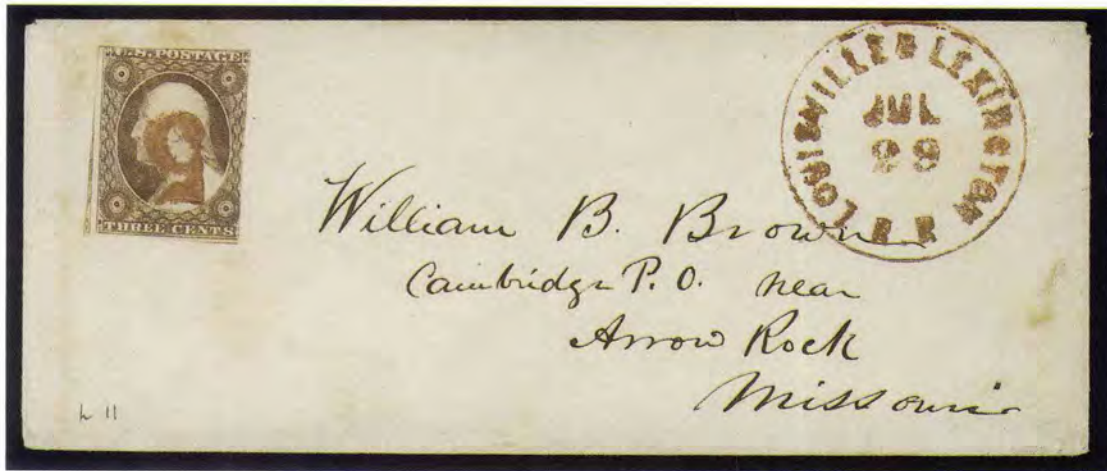 U.S. POSTAGE
THREE CENTS
LOUISVILLE & LEXINGTON
JUL
29
R R
William B. Brown
Cambridge P.O. near
Arrow Rock
Missouri
L 11